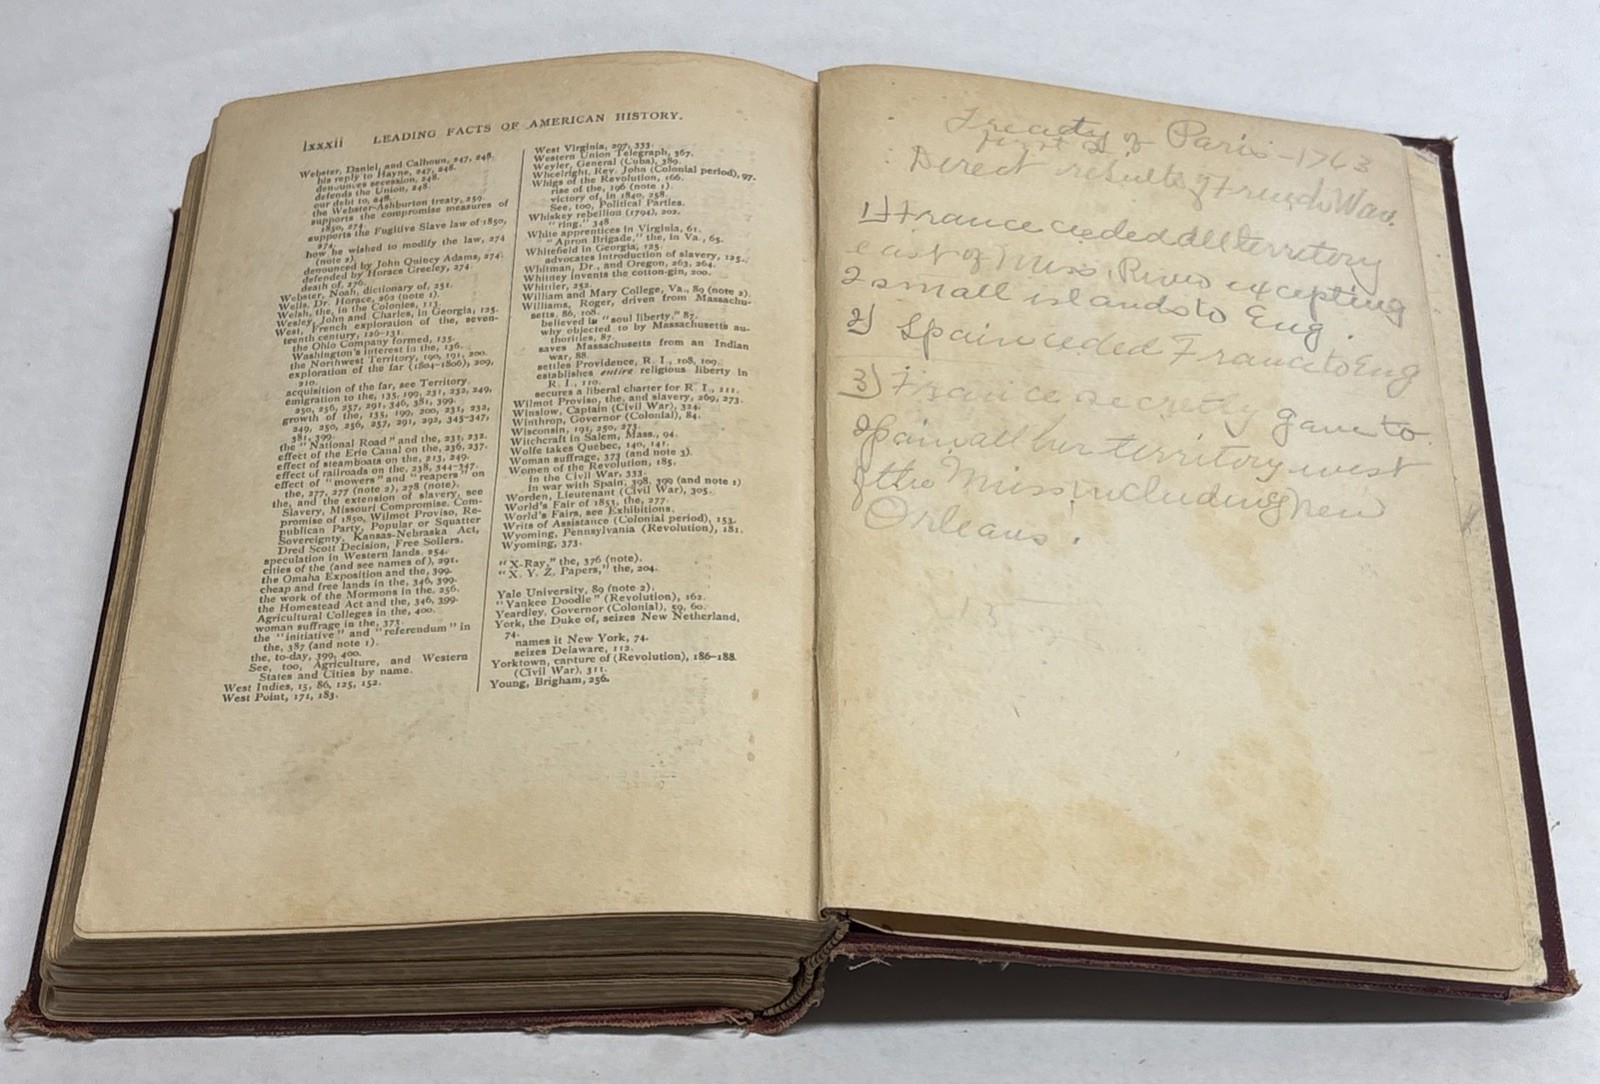 lxxxii LEADING FACTS OF AMERICAN HISTORY.
Webster, Daniel, and Calhoun, 247, 248.
his reply to Hayne, 247, 248.
denounces secession, 248.
defends the Union, 248.
our debt to, 248.
the Webster-Ashburton treaty, 259.
supports the compromise measures of
1850, 274.
supports the Fugitive Slave law of 1850,
274.
how he wished to modify the law, 274
(note 2).
denounced by John Quincy Adams, 274.
defended by Horace Greeley, 274.
death of, 276.
Webster, Noah, dictionary of, 251.
Wells, Dr. Horace, 262 (note 1).
Welsh, the, in the Colonies, 113.
Wesley, John and Charles, in Georgia, 125.
West, French exploration of the, seven-
teenth century, 126-131.
the Ohio Company formed, 135.
Washington's interest in the, 136.
the Northwest Territory, 190, 191, 200.
exploration of the far (1804-1806), 209,
210.
acquisition of the far, see Territory.
emigration to the, 135, 199, 231, 232, 249,
250, 256, 257, 291, 346, 381, 399.
growth of the, 135, 199, 200, 231, 232,
249, 250, 256, 257, 291, 292, 345-347,
381, 399.
the "National Road" and the, 231, 232.
effect of the Erie Canal on the, 236, 237.
effect of steamboats on the, 213, 249.
effect of railroads on the, 238, 344-347.
effect of "mowers" and "reapers" on
the, 277, 277 (note 2), 278 (note).
the, and the extension of slavery, see
Slavery, Missouri Compromise, Com-
promise of 1850, Wilmot Proviso, Re-
publican Party, Popular or Squatter
Sovereignty, Kansas-Nebraska Act,
Dred Scott Decision, Free Soilers.
speculation in Western lands, 254.
cities of the (and see names of), 291.
the Omaha Exposition and the, 399.
cheap and free lands in the, 346, 399.
the work of the Mormons in the, 256.
the Homestead Act and the, 346, 399.
Agricultural Colleges in the, 400.
woman suffrage in the, 373.
the "initiative" and "referendum" in
the, 387 (and note 1).
the, to-day, 399, 400.
See, too, Agriculture, and Western
States and Cities by name.
West Indies, 15, 86, 125, 152.
West Point, 171, 183.
West Virginia, 297, 333.
Western Union Telegraph, 367.
Weyler, General (Cuba), 389.
Wheelright, Rev. John (Colonial period), 97.
Whigs of the Revolution, 166.
rise of the, 196 (note 1).
victory of, in 1840, 258.
See, too, Political Parties.
Whiskey rebellion (1794), 202.
"ring," 348.
White apprentices in Virginia, 61.
"Apron Brigade," the, in Va., 65.
Whitefield in Georgia, 125.
advocates introduction of slavery, 125.
Whitman, Dr., and Oregon, 263, 264.
Whitney invents the cotton-gin, 200.
Whittier, 252.
William and Mary College, Va., 89 (note 2).
Williams, Roger, driven from Massachu-
setts, 86, 108.
believed in "soul liberty," 87.
why objected to by Massachusetts au-
thorities, 87.
saves Massachusetts from an Indian
war, 88.
settles Providence, R. I., 108, 109.
establishes entire religious liberty in
R. I., 110.
secures a liberal charter for R. I., 111.
Wilmot Proviso, the, and slavery, 269, 273.
Winslow, Captain (Civil War), 324.
Winthrop, Governor (Colonial), 84.
Wisconsin, 191, 250, 273.
Witchcraft in Salem, Mass., 94.
Wolfe takes Quebec, 140, 141.
Woman suffrage, 373 (and note 3).
Women of the Revolution, 185.
in the Civil War, 333.
in war with Spain, 398, 399 (and note 1)
Worden, Lieutenant (Civil War), 305.
World's Fair of 1853, the, 277.
World's Fairs, see Exhibitions.
Writs of Assistance (Colonial period), 153.
Wyoming, Pennsylvania (Revolution), 181.
Wyoming, 373.
"X-Ray," the, 376 (note).
"X. Y. Z. Papers," the, 204.
Yale University, 89 (note 2).
"Yankee Doodle" (Revolution), 162.
Yeardley, Governor (Colonial), 59, 60.
York, the Duke of, seizes New Netherland,
74.
names it New York, 74.
seizes Delaware, 112.
Yorktown, capture of (Revolution), 186-188.
(Civil War), 311.
Young, Brigham, 256.
Treaty of Paris - 1763
Direct results of French War.
1) France ceded all territory
east of Miss. River excepting
2 small islands to Eng.
2) Spain ceded France to Eng
3) France secretly gave to
Spain all her territory west
of the Miss including New
Orleans.